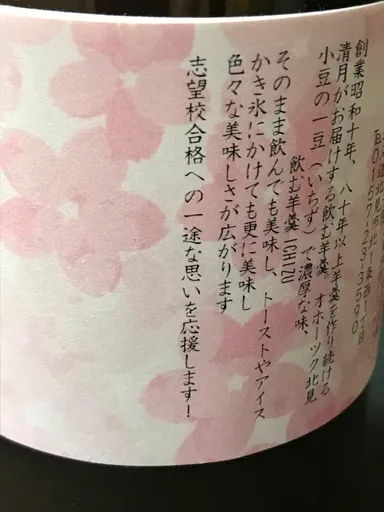 創業昭和十年、八十年以上羊羹を作り続ける
清月がお届けする飲む羊羹。オホーツク北見
小豆の一豆（いちず）で濃厚な味、
飲む羊羹 ICHIZU
そのまま飲んでも美味し、トーストやアイス
かき氷にかけても更に美味し
色々な美味しさが広がります
志望校合格への一途な思いを応援します！